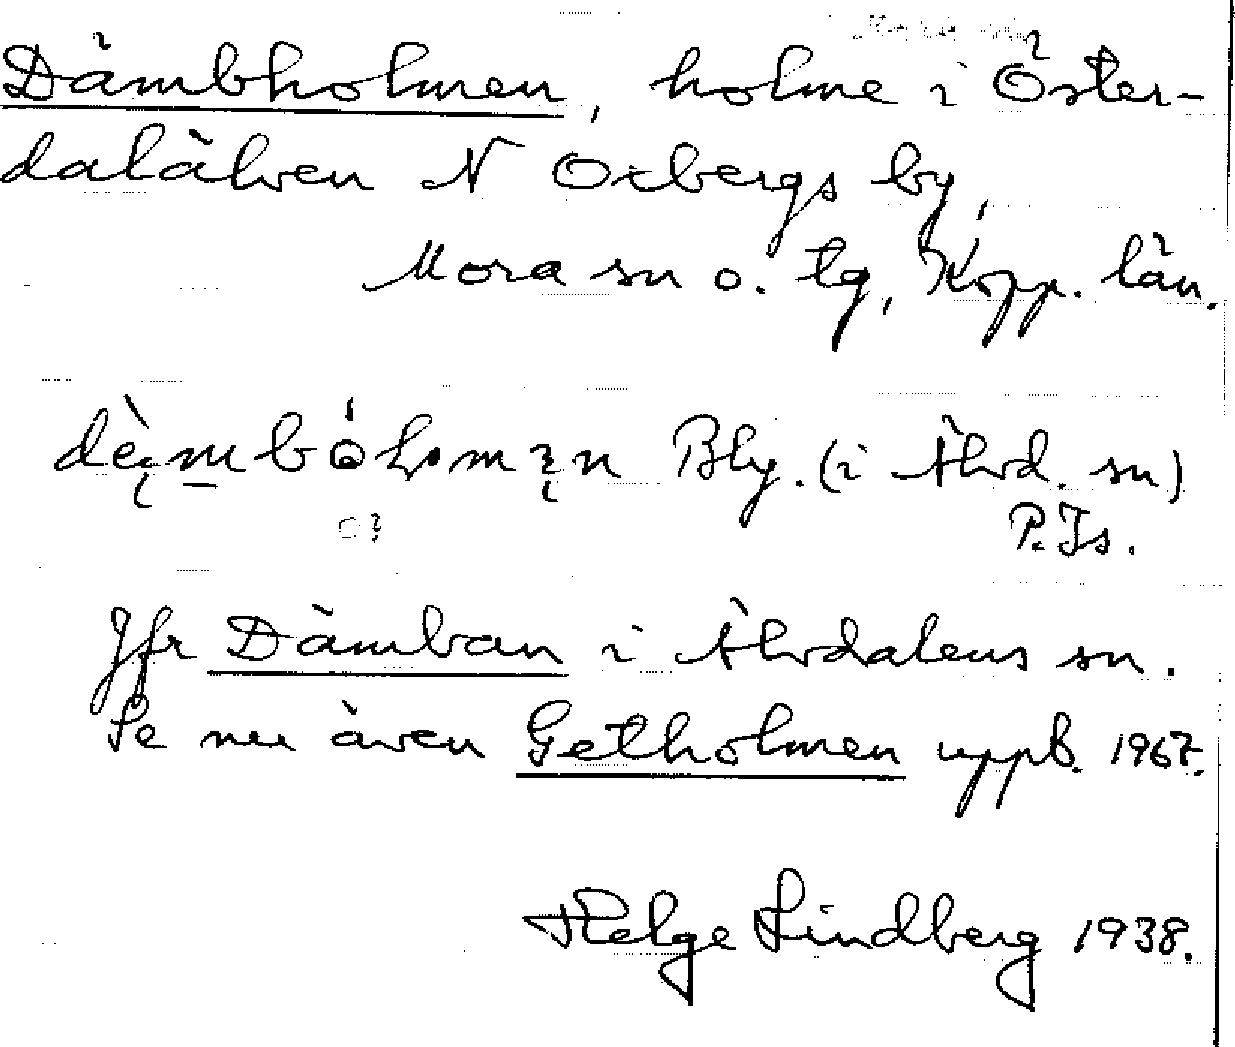 Dämbholmen, holme i Öster-
dalälven N Oxbergs by,
Mora sn o. tg, Kopp. län.
Bly. (i Älvd. sn)
P. Js.
Jfr Dämban i Älvdalens sn.
Se nu även Getholmen uppb. 1967.
Helge Lindberg 1938.